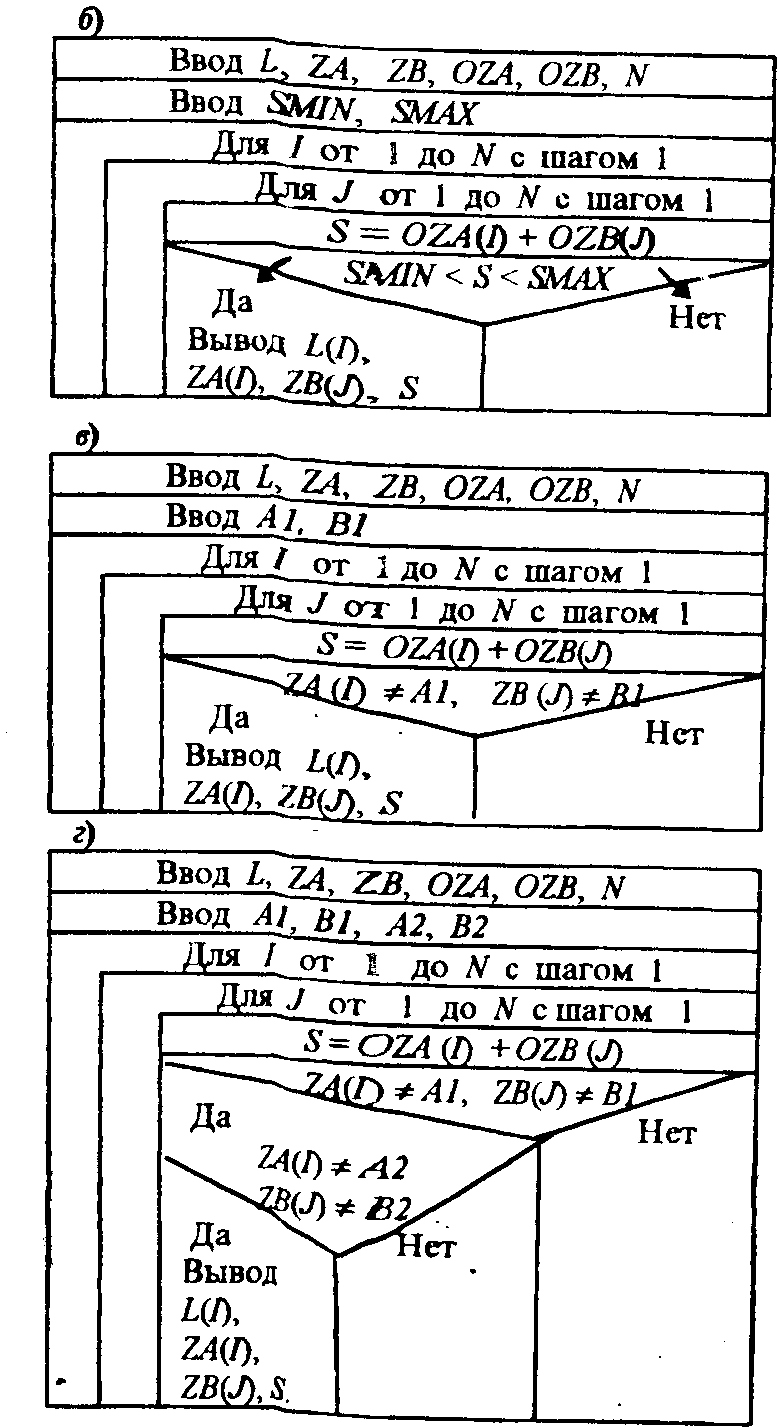 б)
Ввод L, ZA, ZB, OZA, OZB, N
Ввод SMIN, SMAX
Для I от 1 до N с шагом 1
Для J от 1 до N с шагом 1
S = OZA(I) + OZB(J)
SMIN < S < SMAX
Да
Нет
Вывод L(I),
ZA(I), ZB(J), S
в)
Ввод L, ZA, ZB, OZA, OZB, N
Ввод A1, B1
Для I от 1 до N с шагом 1
Для J от 1 до N с шагом 1
S = OZA(I) + OZB(J)
ZA(I) ≠ A1, ZB(J) ≠ B1
Да
Нет
Вывод L(I),
ZA(I), ZB(J), S
г)
Ввод L, ZA, ZB, OZA, OZB, N
Ввод A1, B1, A2, B2
Для I от 1 до N с шагом 1
Для J от 1 до N с шагом 1
S = OZA(I) + OZB(J)
ZA(I) ≠ A1, ZB(J) ≠ B1
Да
Нет
ZA(I) ≠ A2
ZB(J) ≠ B2
Да
Нет
Вывод
L(I),
ZA(I),
ZB(J), S.